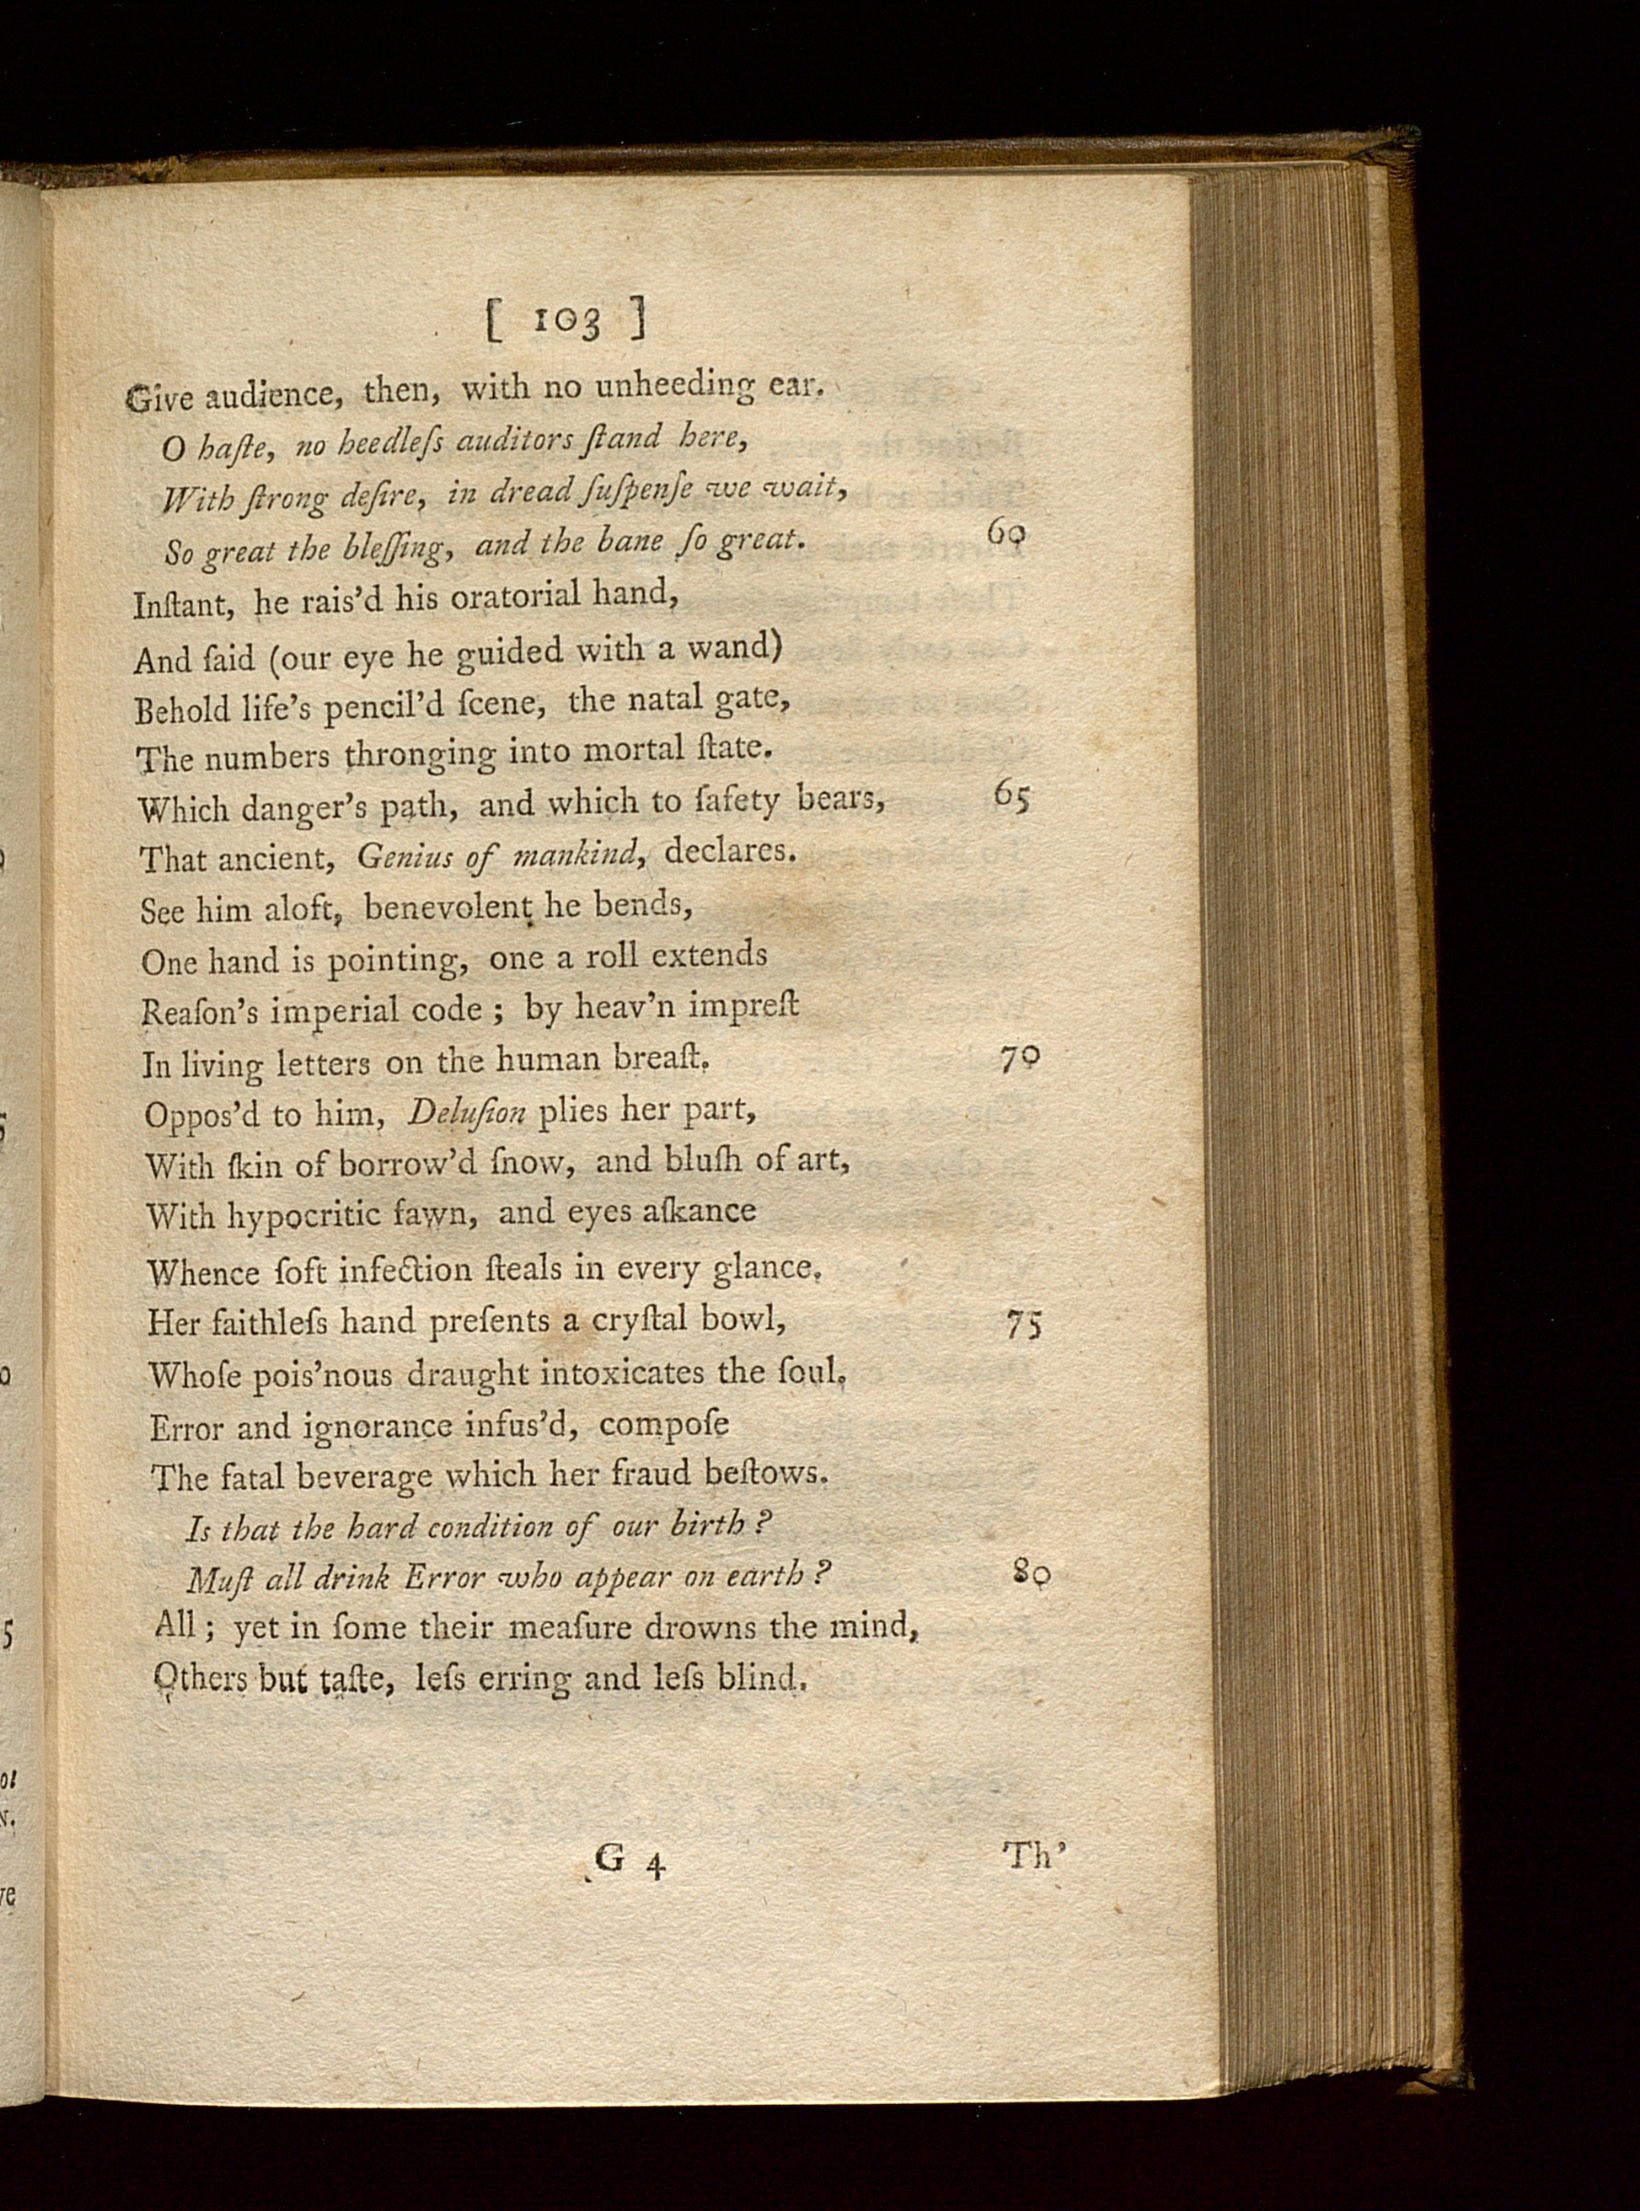 [ 103 ]
Give audience, then, with no unheeding ear.
O haſte, no heedleſs auditors ſtand here,
With ſtrong deſire, in dread ſuſpenſe we wait,
So great the bleſſing, and the bane ſo great. 60
Inſtant, he rais’d his oratorial hand,
And ſaid (our eye he guided with a wand)
Behold life’s pencil’d ſcene, the natal gate,
The numbers thronging into mortal ſtate.
Which danger’s path, and which to ſafety bears, 65
That ancient, Genius of mankind, declares.
See him aloft, benevolent he bends,
One hand is pointing, one a roll extends
Reaſon’s imperial code ; by heav’n impreſt
In living letters on the human breaſt. 70
Oppos’d to him, Deluſion plies her part,
With ſkin of borrow’d ſnow, and bluſh of art,
With hypocritic fawn, and eyes aſkance
Whence ſoft infection ſteals in every glance.
Her faithleſs hand preſents a cryſtal bowl, 75
Whoſe pois’nous draught intoxicates the ſoul.
Error and ignorance infus’d, compoſe
The fatal beverage which her fraud beſtows.
Is that the hard condition of our birth ?
Muſt all drink Error who appear on earth ? 80
All ; yet in ſome their meaſure drowns the mind,
Others but taſte, leſs erring and leſs blind.
G 4 Th’